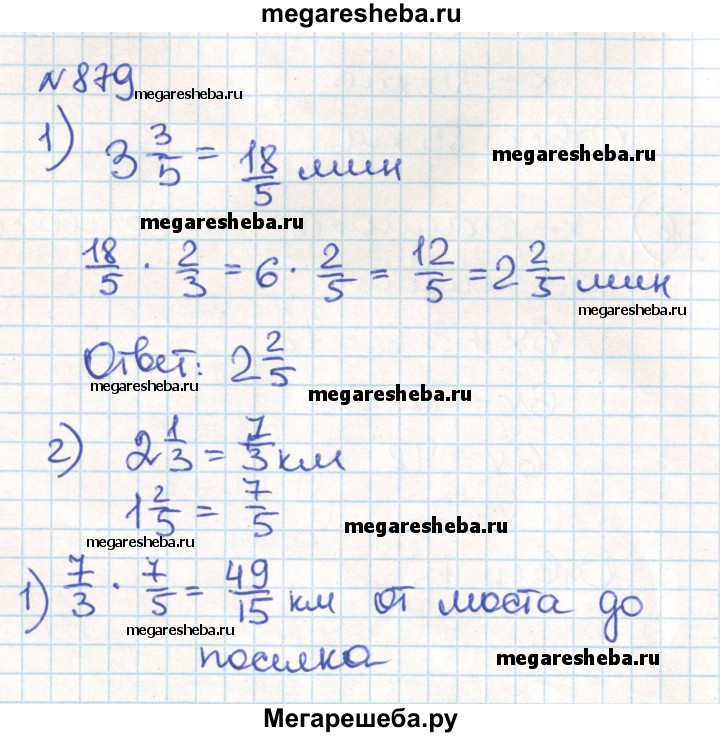 megaresheba.ru
№879
megaresheba.ru
1) 3 3/5 = 18/5 мин
megaresheba.ru
megaresheba.ru
18/5 · 2/3 = 6 · 2/5 = 12/5 = 2 2/5 мин
megaresheba.ru
Ответ: 2 2/5
megaresheba.ru
megaresheba.ru
2) 2 1/3 = 7/3 км
1 2/5 = 7/5
megaresheba.ru
megaresheba.ru
1) 7/3 · 7/5 = 49/15 км от моста до
megaresheba.ru
посилка
megaresheba.ru
Мегарешеба.ру